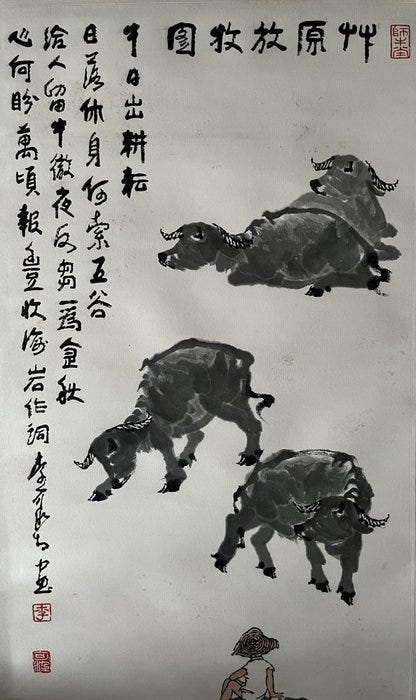 艸原放牧图
牛日出耕耘
日落休身何索五谷
给人留牛徹夜反刍一为金秋
心何盼萬頃報豐收海岩作詞李可染画
李